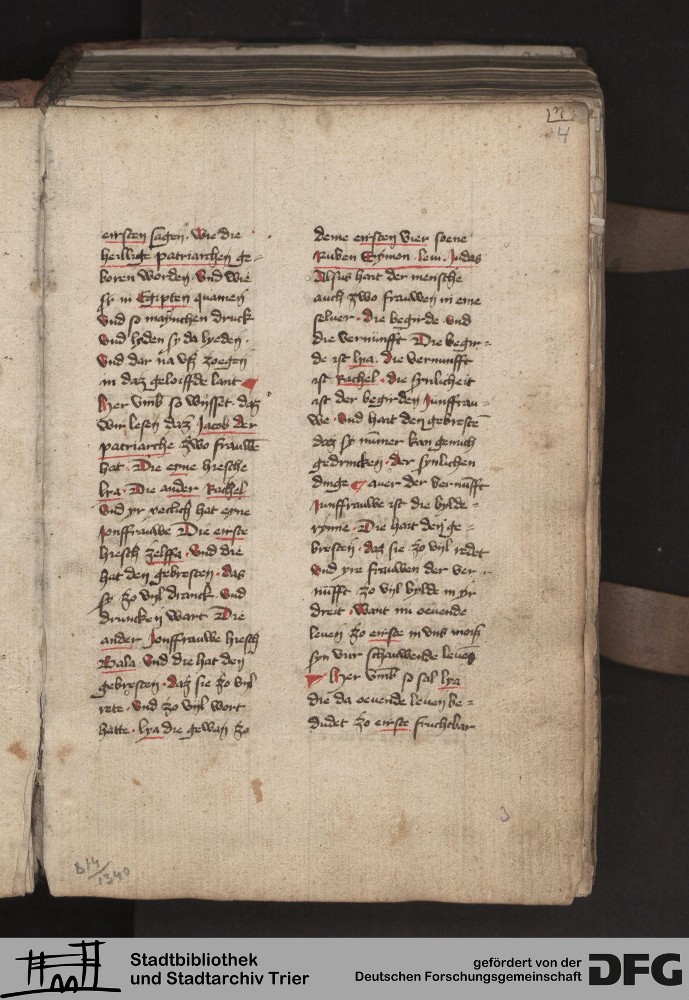 4
eirsten sagen. Wie die
heillige patriarchen ge-
boren worden. Vnd wie
sy in Egipten quamen
Vnd so maynchen druck
Vnd lyden sy da lyeden.
Vnd dar na vß zoegen
in daz geloiffde lant
Her vmb so wysset. daz
wir lesen daz Jacob der
patriarche zwo frauwē
hat. Die eyne hiesche
lya. Die ander Rachel
Vnd yr yeclich hat eyne
Jonffrauwe Die eirste
hiesch zelffa. Vnd die
hat den gebresten. das
sy zo vyl dranck. Vnd
druncken wart Die
ander Jonffrauwe hiesch
Bala. Vnd die hat den
gebresten. daz sie zo vyl
rete. Vnd zo vyl wort
hatte. lya die gewan zo
deme eirsten vier soene
Ruben Symon. leui. Judas
Alsus hait der mensche
auch zwo frauwen in eme
seluer. die begirde. Vnd
die vernunfft Die begir-
de ist lya. die vernunfft
ist Rachel. die synlicheit
ist der begirden Junffrau-
we. Vnd hait den gebrestē
daz sy nūmer kan genuch
gedrincken. der synlichen
dinge auer der vernūfft
Junffrauwe ist die bylde-
rynne. Die hait den ge-
bresten. daz sie zo vyl redet
Vnd yre frauwen der ver-
nūfft zo vyl bylde in yr
dreit. Want nu oeuende
leuen zo eirste in vns moiß
syn vur schauwende leuen
Her vmb so sal lya
die da oeuende leuen be-
dudet zo eirste fruchtbar
3
814/1340
Stadtbibliothek
und Stadtarchiv Trier
gefördert von der
Deutschen Forschungsgemeinschaft
DFG